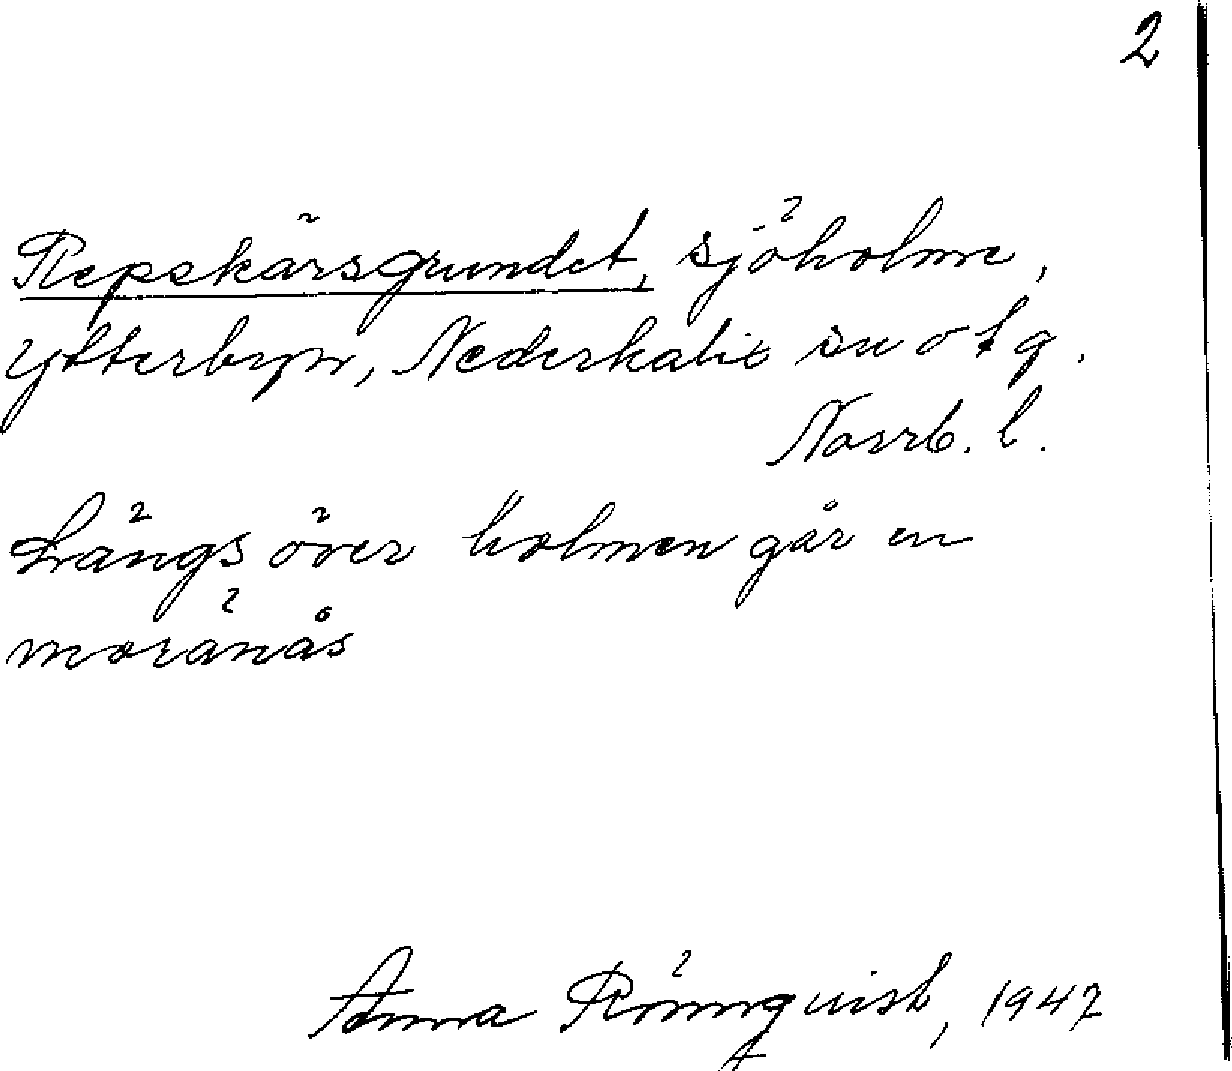 2
Repskärsgrundet, sjöholme,
Ytterbyn, Nederkalix sn o tg.
Norrb. l.
Längs över holmen går en
moränås
Anna Rönnqvist, 1947